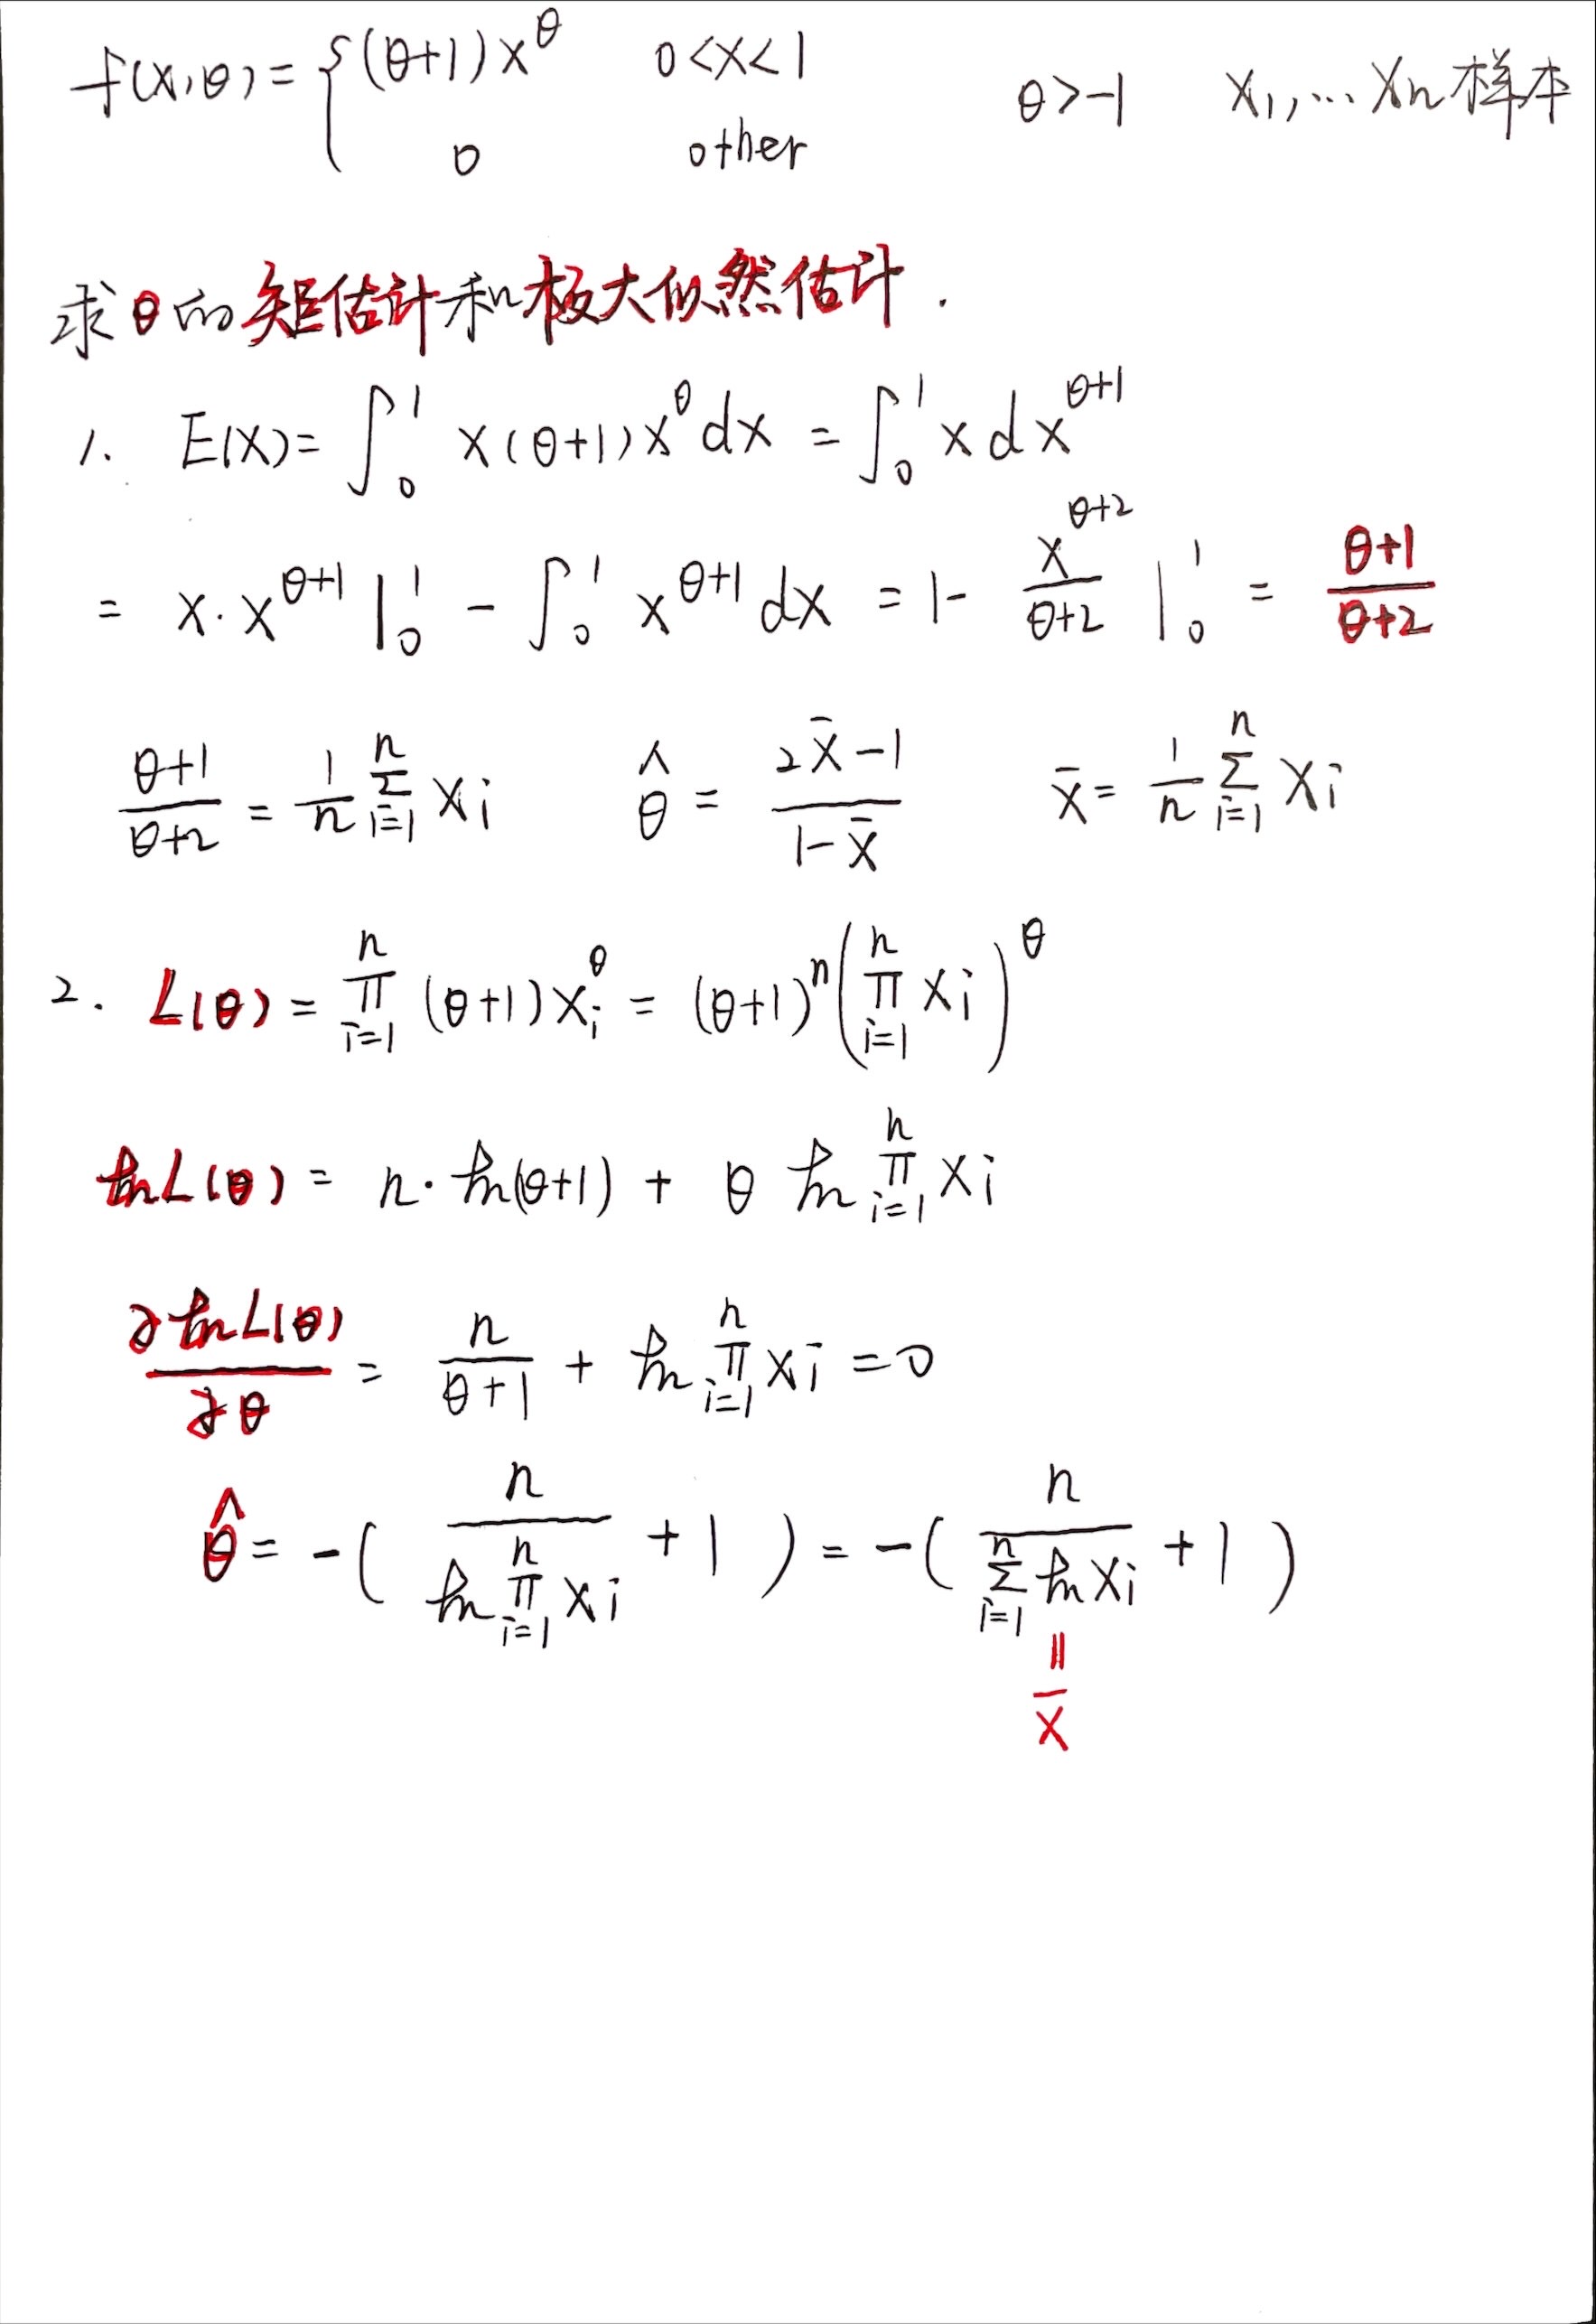 f(x,θ)= { (θ+1)x^θ 0<x<1 θ>-1 x₁,,… xn 样本
0 other
求θ的矩估计和极大似然估计.
1. E(X)= ∫₀¹ x(θ+1)x^θ dx = ∫₀¹ x d x^(θ+1)
= x·x^(θ+1) |₀¹ - ∫₀¹ x^(θ+1) dx = 1- x^(θ+2)/(θ+2) |₀¹ = (θ+1)/(θ+2)
(θ+1)/(θ+2) = 1/n Σ_(i=1)^n xi θ̂ = (2x̄-1)/(1-x̄) x̄ = 1/n Σ_(i=1)^n xi
2. L(θ) = Π_(i=1)^n (θ+1)xi^θ = (θ+1)^n (Π_(i=1)^n xi)^θ
lnL(θ) = n·ln(θ+1) + θ ln Π_(i=1)^n xi
∂lnL(θ)/∂θ = n/(θ+1) + ln Π_(i=1)^n xi = 0
θ̂ = -( n/(ln Π_(i=1)^n xi) +1 ) = -( n/(Σ_(i=1)^n ln xi) +1 )
=
x̄